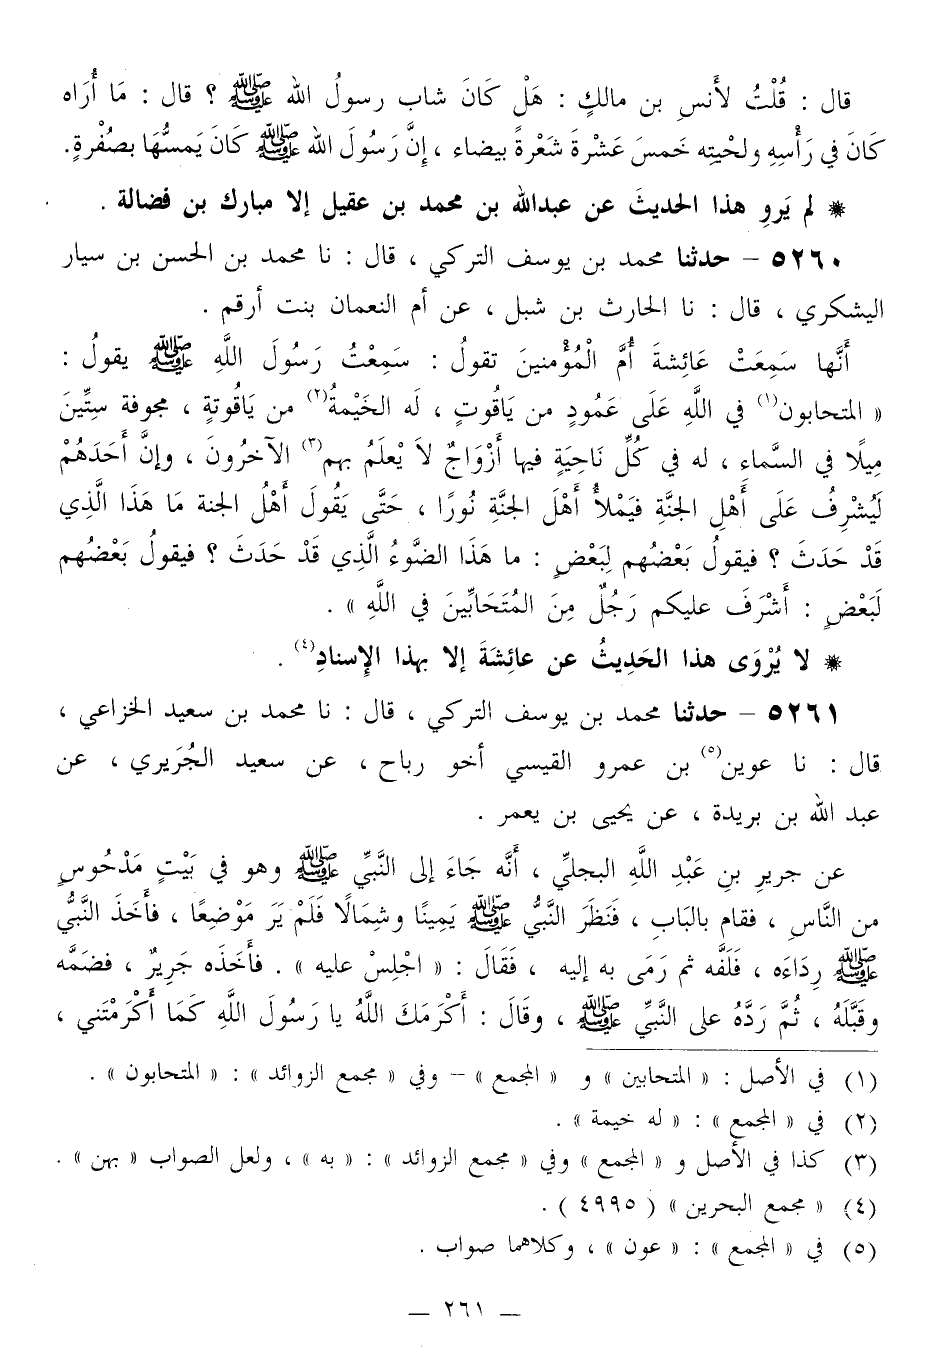 قال : قُلْتُ لأَنسِ بن مالكٍ : هَلْ كَانَ شاب رسولُ الله ﷺ ؟ قال : مَا أُرَاه
كَانَ في رَأْسِهِ ولحْيته خَمسَ عَشْرةَ شَعْرةً بيضاء ، إنَّ رَسُولَ الله ﷺ كَانَ يَمسُّهَا بصُفْرةٍ.
* لم يَروِ هذا الحديثَ عن عبدالله بن محمد بن عقيل إلا مبارك بن فضالة .
٥٢٦٠ – حدثنا محمد بن يوسف التركي ، قال : نا محمد بن الحسن بن سيار
اليشكري ، قال : نا الحارث بن شبل ، عن أم النعمان بنت أرقم .
أَنَّها سَمِعَتْ عَائِشةَ أُمَّ الْمُؤْمنينَ تقولُ : سَمِعْتُ رَسُولَ اللَّهِ ﷺ يقولُ :
« المتحابون(١) في اللَّهِ عَلَى عَمُودٍ من يَاقُوتٍ ، لَه الخَيْمةُ(٢) من يَاقُوتةٍ ، مجوفة ستِّينَ
مِيلًا في السَّماءِ ، له في كُلِّ نَاحِيَةٍ فيها أزْوَاجٌ لاَ يْعلَمُ بهم(٣) الآخرُونَ ، وإنَّ أَحَدَهُمْ
لَيُشْرِفُ عَلَى أَهْلِ الجنَّةِ فيَملأُ أهْلَ الجنَّةِ نُورًا ، حَتَّى يَقُولَ أَهْلُ الجنة مَا هَذَا الَّذِي
قَدْ حَدَثَ ؟ فيقولُ بَعْضُهم لِبَعْضٍ : ما هَذَا الضَّوءُ الَّذِي قَدْ حَدَثَ ؟ فيقولُ بَعْضُهم
لَبَعْضٍ : أَشْرَفَ عليكم رَجُلٌ مِنَ المُتَحَابِّينَ في اللَّهِ » .
* لا يُرْوَى هذا الحَدِيثُ عن عائِشَةَ إلا بهذا الإِسنادِ(٤) .
٥٢٦١ – حدثنا محمد بن يوسف التركي ، قال : نا محمد بن سعيد الخزاعي ،
قال : نا عوين(٥) بن عمرو القيسي أخو رباح ، عن سعيد الجُرَيري ، عن
عبد الله بن بريدة ، عن يحيى بن يعمر .
عن جريرِ بنِ عَبْدِ اللَّهِ البجليِّ ، أَنَّه جَاءَ إلى النَّبيِّ ﷺ وهو في بَيْتٍ مَدْحُوسٍ
من النَّاسِ ، فقام بالبَابِ ، فَنَظَرَ النَّبيُّ ﷺ يَمِينًا وشِمَالًا فَلَمْ يَرَ مَوْضِعًا ، فأَخَذَ النَّبيُّ
ﷺ رِدَاءَه ، فَلَفَّه ثم رَمَى به إليه ، فَقَالَ : « اجْلِسْ عليه » . فأَخَذَه جَرِيرٌ ، فضَمَّه
وقبَّلَهُ ، ثُمَّ رَدَّهُ على النَّبيِّ ﷺ ، وقَالَ : أَكْرَمَكَ اللَّهُ يا رَسُولَ اللَّهِ كَمَا أَكْرَمْتَني ،
(١) في الأصل : « المتحابين » و « المجمع » – وفي « مجمع الزوائد » : « المتحابون » .
(٢) في « المجمع » : « له خيمة » .
(٣) كذا في الأصل و « المجمع » وفي « مجمع الزوائد » : « به » ، ولعل الصواب « بهن » .
(٤) « مجمع البحرين » ( ٤٩٩٥ ) .
(٥) في « المجمع » : « عون » ، وكلاهما صواب .
— ٢٦١ —